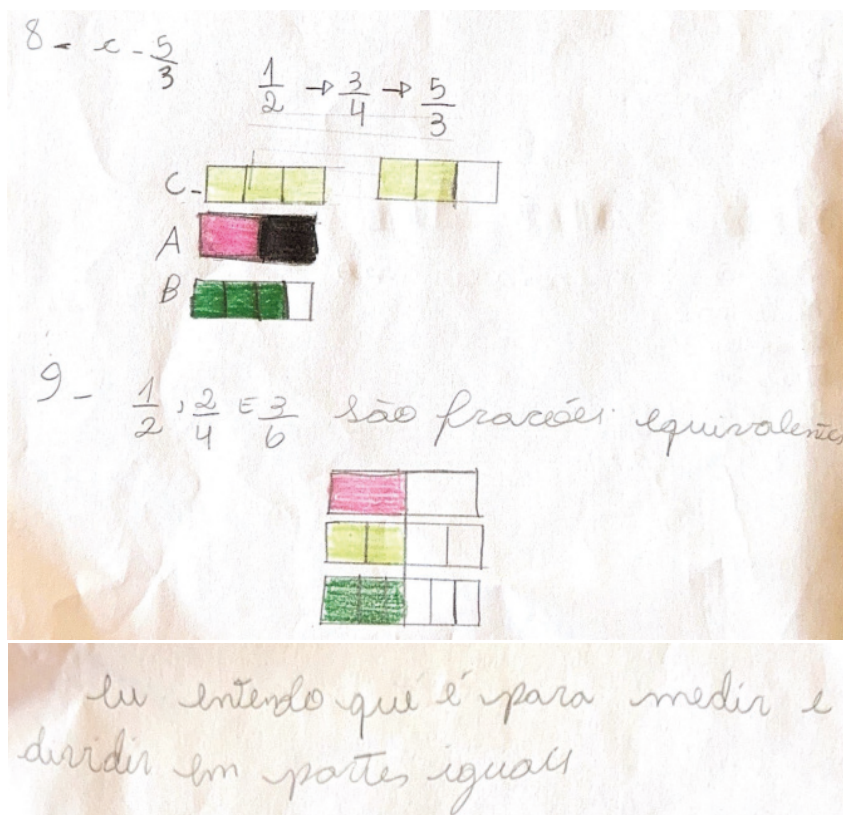 8 - c - 5/3
1/2 → 3/4 → 5/3
C-
A
B
9- 1/2, 2/4 E 3/6 são frações equivalentes
Eu entendo que é para medir e
dividir em partes iguais